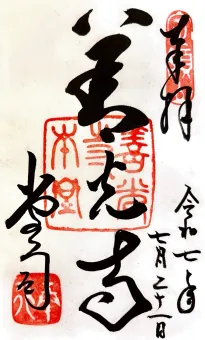 奉拝
令和七年
七月二十一日
善光寺
善光寺本堂